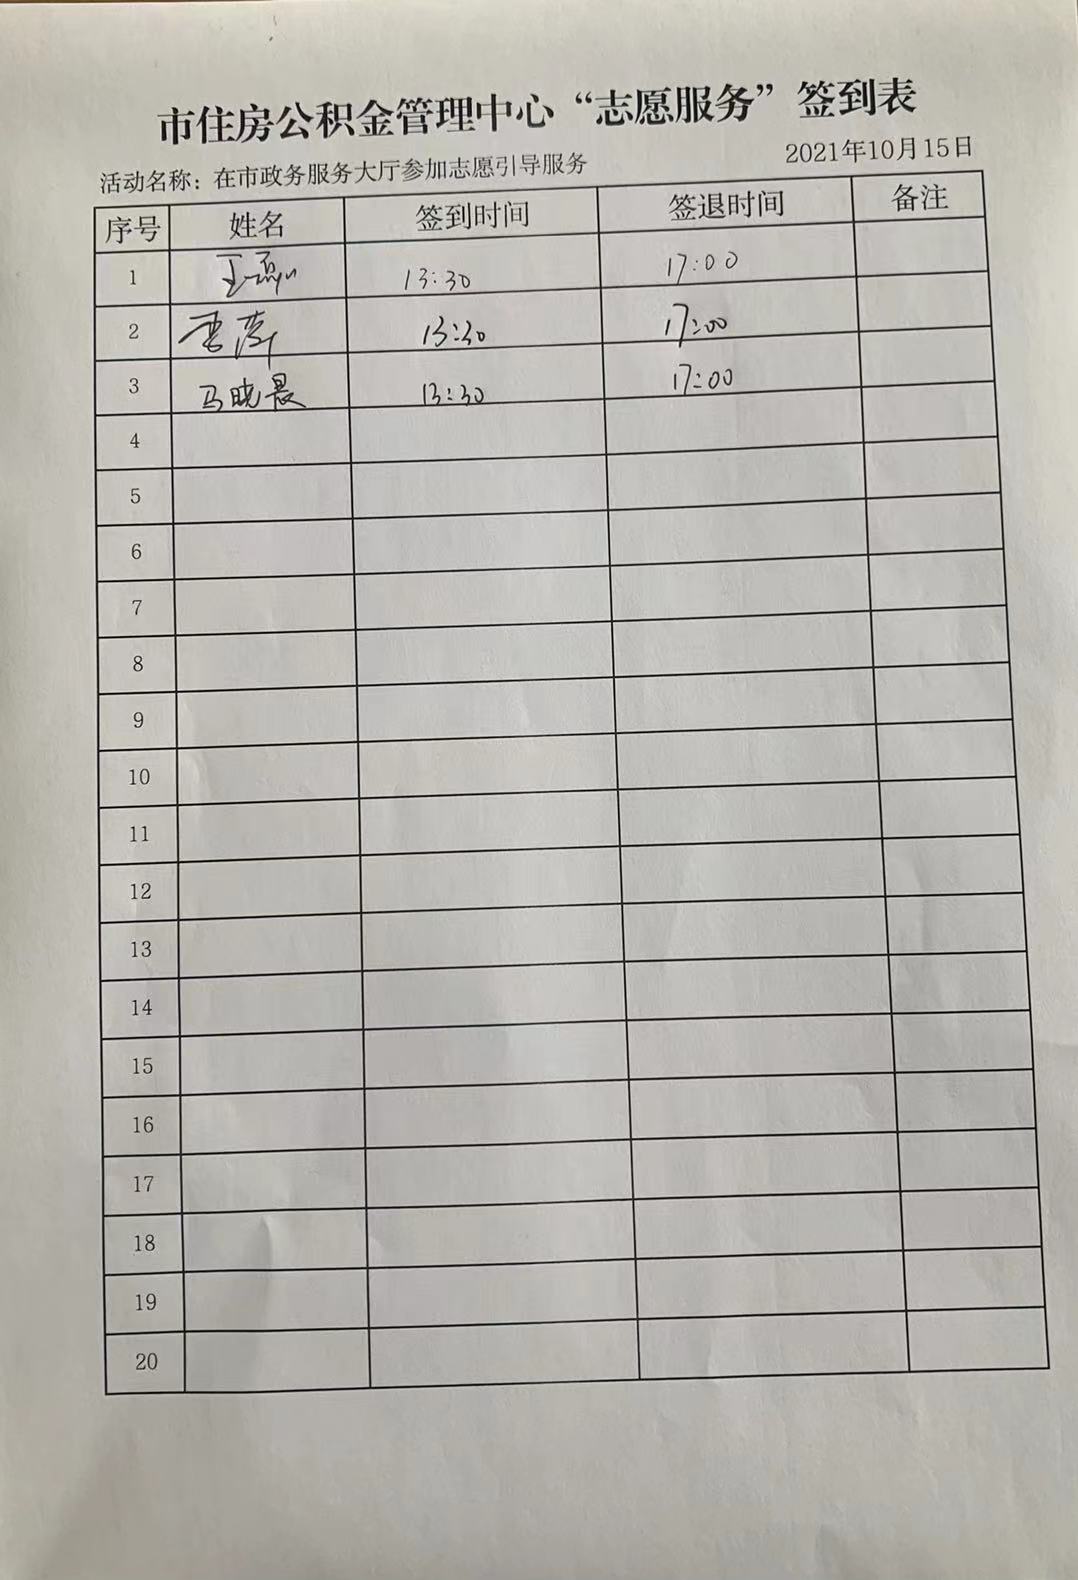 市住房公积金管理中心“志愿服务”签到表
活动名称：在市政务服务大厅参加志愿引导服务 2021年10月15日
序号 姓名 签到时间 签退时间 备注
1 13:30 17:00
2 13:30 17:00
3 马晓晨 13:30 17:00
4
5
6
7
8
9
10
11
12
13
14
15
16
17
18
19
20